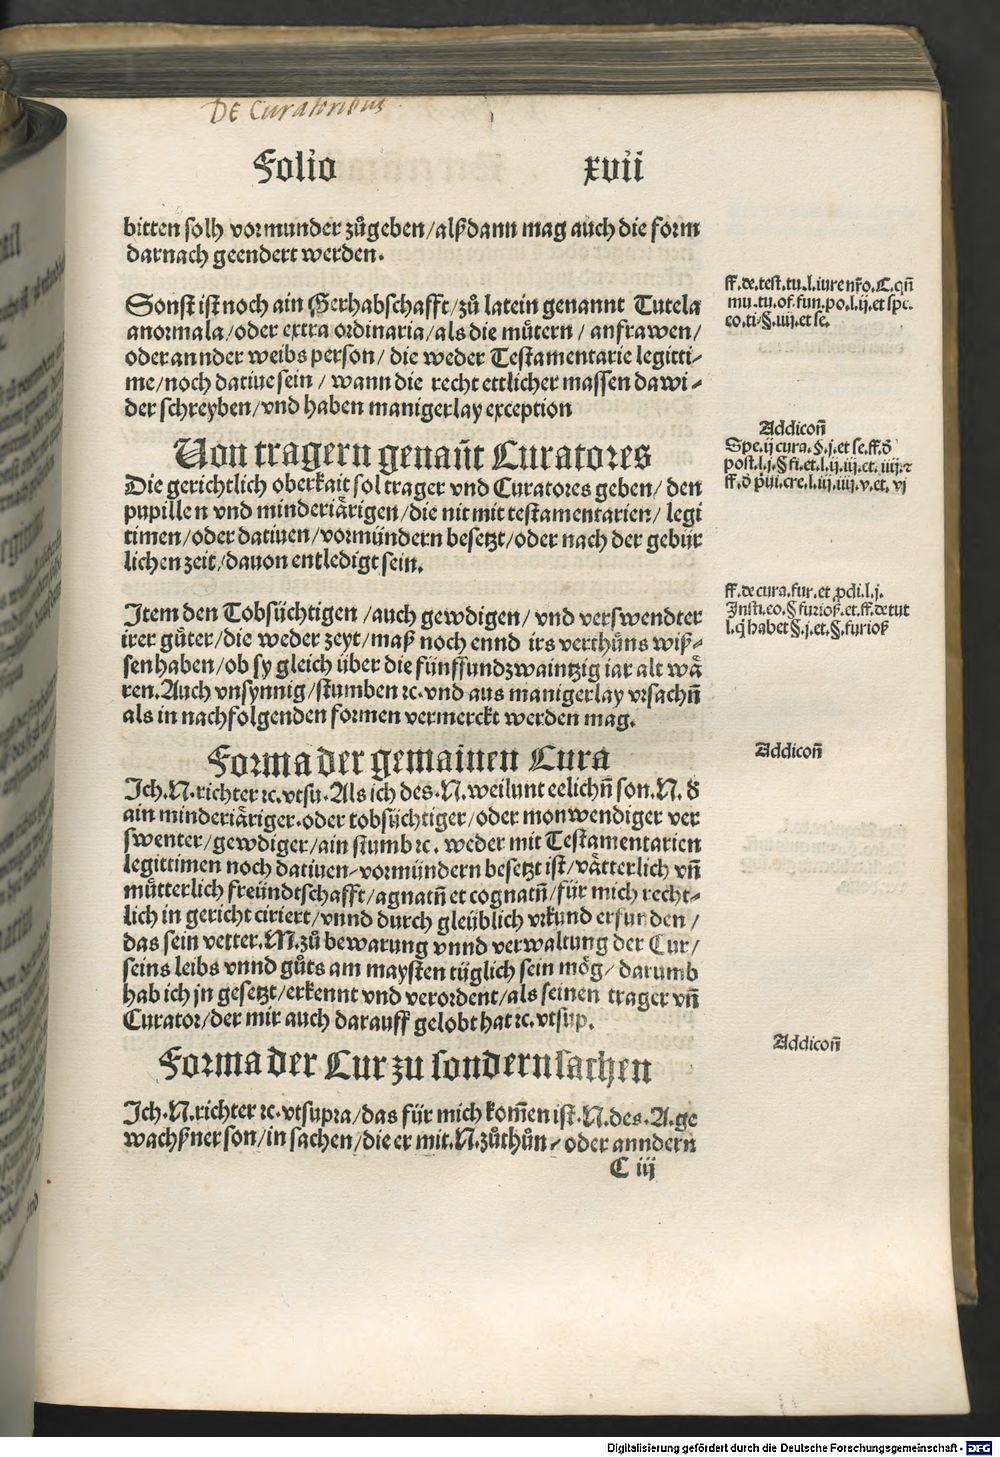 DE Curatoribus
Folio xvii
bitten solh vormunder zůgeben/alßdann mag auch die form
darnach geendert werden.
Sonst ist noch ain Gerhabschafft/zů latein genannt Tutela
anormala/oder extra ordinaria/als die můtern/anfrawen/
oder annder weibs person/die weder Testamentarie legitti-
me/noch datiue sein/wann die recht ettlicher massen dawi-
der schreyben/vnd haben manigerlay exception
ff.de.test.tu.l.iure nr̃o.C.qñ
mu.tu.of.fun.po.l.ij.et spe.
eo.ti.§.iiij.et se.
Von tragern genañt Curatores
Die gerichtlich oberkait sol trager vnd Curatores geben/den
pupillen vnd minderiärigen/die nit mit testamentarien/legi
timen/oder datiuen/vormündern besetzt/oder nach der gebür
lichen zeit/dauon entledigt sein.
Addicoñ
Spe.ij cura.§.j.et se.ff.
post.l.j.§ fi.et.l.ij.iij.et.iiij.
cre.l.iij.iiij.v.et.vj
Item den Tobsüchtigen/auch gewdigen/vnd verswendter
irer gůter/die weder zeyt/maß noch ennd irs verthůns wiß-
sen haben/ob sy gleich über die fünffundzwaintzig iar alt wä
ren.Auch vnsynnig/stumben ꝛc.vnd aus manigerlay vrsachñ
als in nachfolgenden formen vermerckt werden mag.
ff.de cura.fur.et ꝓdi.l.j.
Insti.eo.§ furioß.et.ff.de tut
l.q̃ habet §.j.et.§.furioß
Forma der gemainen Cura
Ich.N.richter ꝛc.vtsu.Als ich des.N.weilunt eelichñ son.N.
ain minderiäriger.oder tobsüchtiger/oder monwendiger ver
swenter/gewdiger/ain stumb ꝛc.weder mit Testamentarien
legittimen noch datiuen-vormündern besetzt ist/vätterlich vñ
můtterlich freündtschafft/agnatñ et cognatñ/für mich recht-
lich in gericht citiert/vnnd durch gleüblich vrkund erfunden/
das sein vetter.M.zů bewarung vnnd verwaltung der Cur/
seins leibs vnnd gůts am maysten tüglich sein mög/darumb
hab ich jn gesetzt/erkennt vnd verordent/als seinen trager vñ
Curator/der mir auch darauff gelobt hat ꝛc.vtsup.
Addicoñ
Forma der Cur zu sondern sachen
Ich.N.richter ꝛc.vtsupra/das für mich kom̃en ist.N.des.A.ge
wachßner son/in sachen/die er mit.N.zůthůn-oder anndern
C iij
Addicoñ
Digitalisierung gefördert durch die Deutsche Forschungsgemeinschaft - DFG